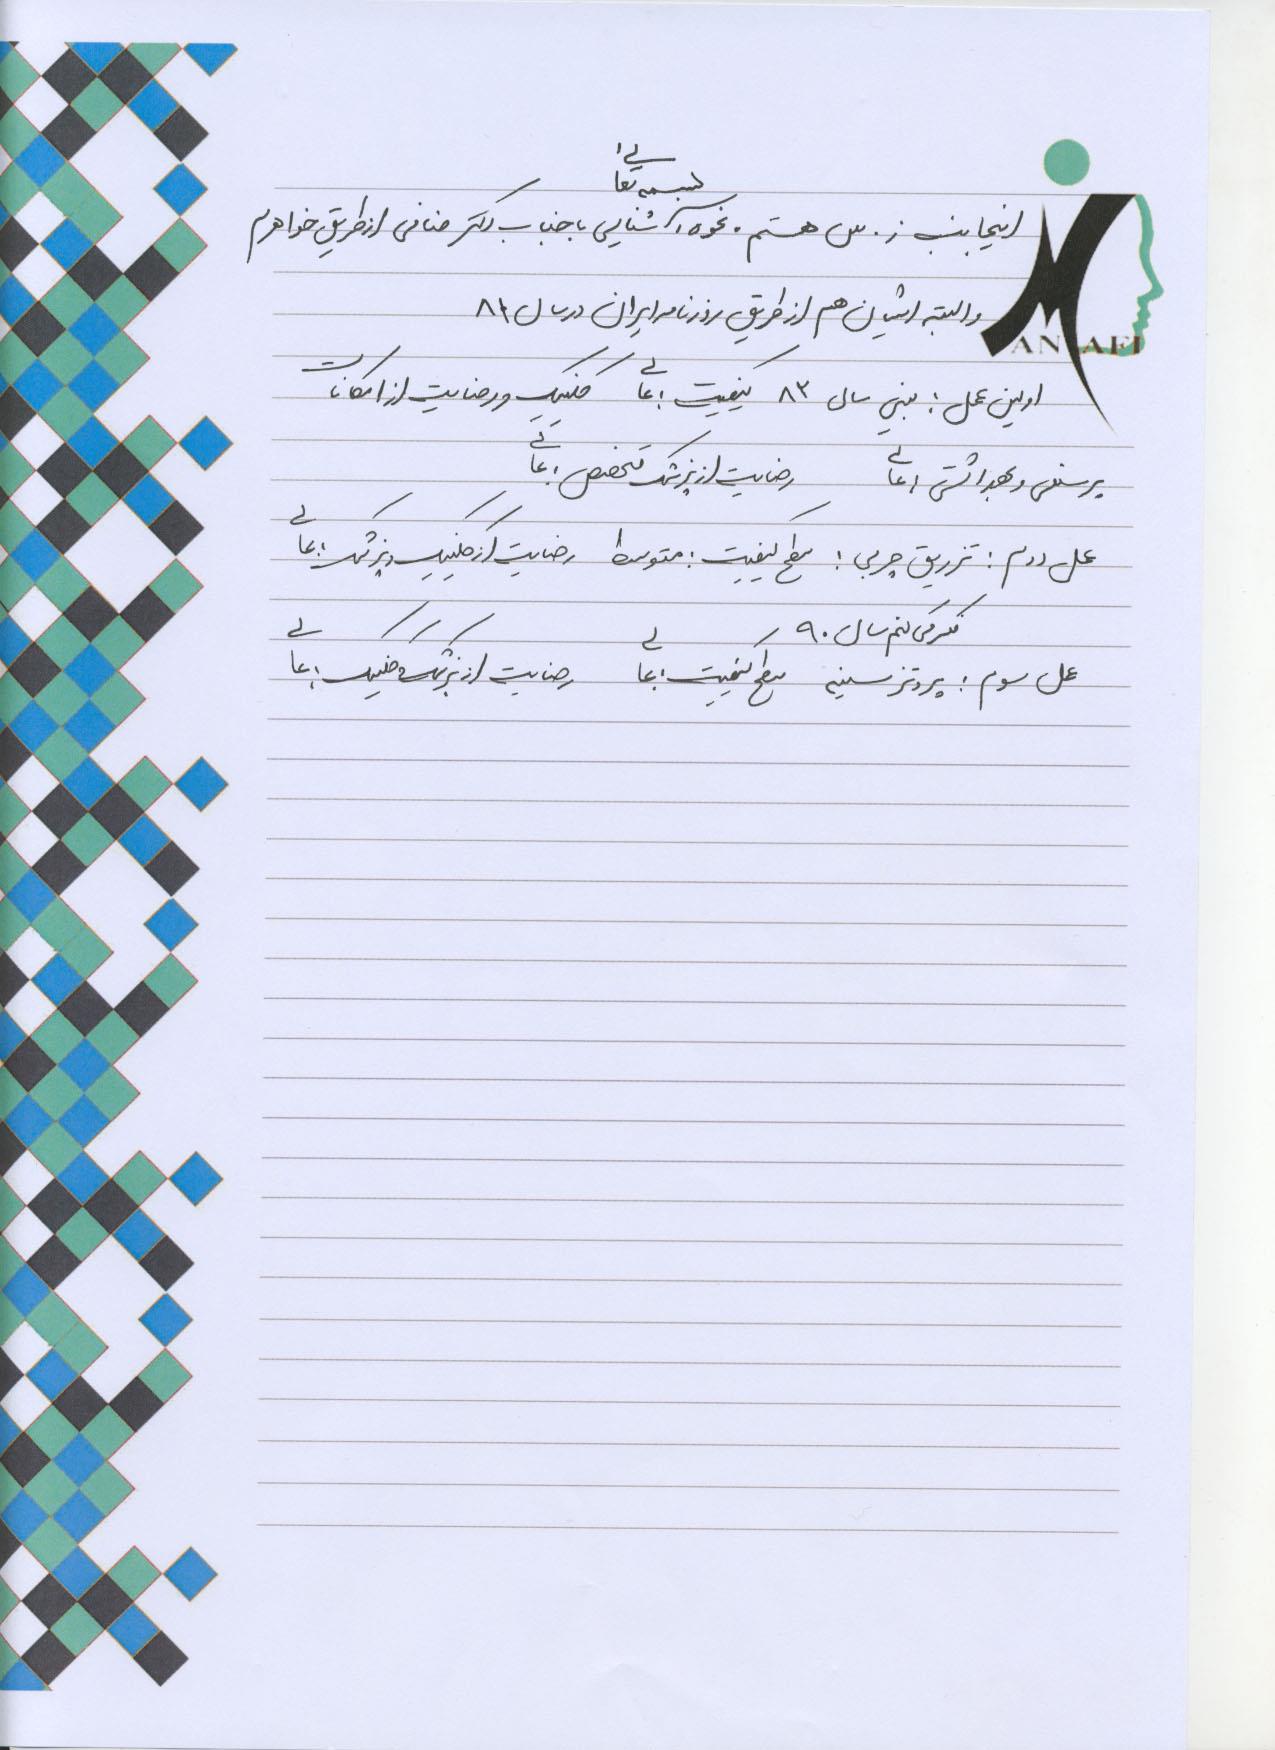 بسمه تعالی
اینجانب ز. س هستم. نحوه آشنایی با جناب دکتر منافی از طریق خواهرم
MANAFI
و البته ایشان هم از طریق روزنامه ایران در سال ۸۱
اولین عمل: بینی سال ۸۳ کیفیت: عالی کلینیک و رضایت از امکانات
پرسنلی و بهداشتی: عالی رضایت از پزشک متخصص: عالی
عمل دوم: تزریق چربی: سطح کیفیت: متوسط رضایت از کلینیک و پزشک: عالی
فکر می کنم سال ۹۰
عمل سوم: پروتز سینه سطح کیفیت: عالی رضایت از پزشک و کلینیک: عالی